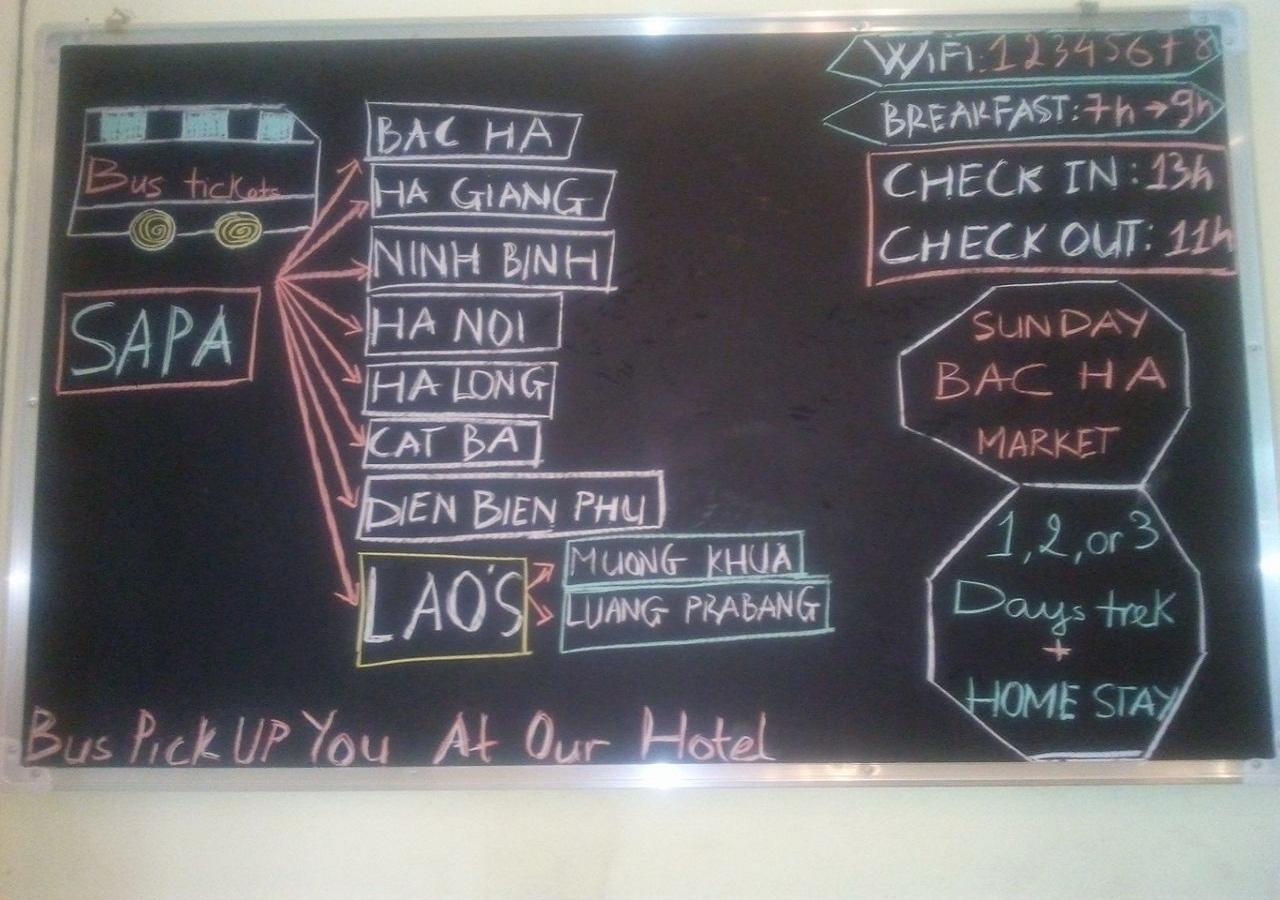 Bus tickets
SAPA
BAC HA
HA GIANG
NINH BINH
HA NOI
HA LONG
CAT BA
DIEN BIEN PHU
LAO'S
MUONG KHUA
LUANG PRABANG
WiFi: 12345678
BREAKFAST: 7h → 9h
CHECK IN: 13h
CHECK OUT: 11h
SUNDAY
BAC HA
MARKET
1, 2, or 3
Days trek
+
HOME STAY
Bus Pick UP You At Our Hotel